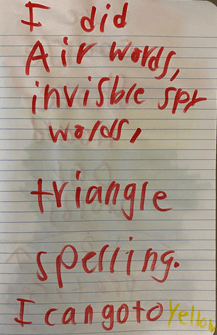 I did
Air words,
invisble spy
words,
triangle
spelling.
I can go to Yellow